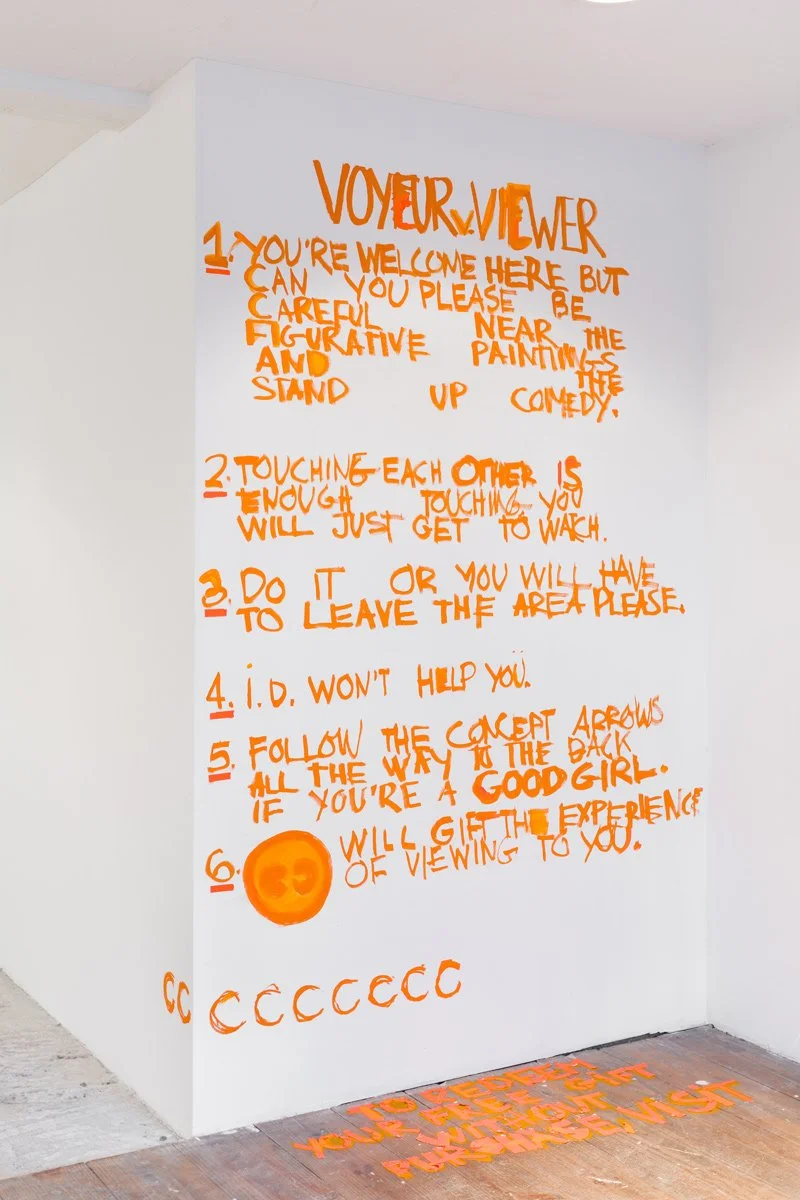 VOYEUR v. VIEWER
1. YOU'RE WELCOME HERE BUT
CAN YOU PLEASE BE
CAREFUL NEAR THE
FIGURATIVE PAINTINGS
AND THE
STAND UP COMEDY.
2. TOUCHING EACH OTHER IS
ENOUGH TOUCHING YOU
WILL JUST GET TO WATCH.
3. DO IT OR YOU WILL HAVE
TO LEAVE THE AREA PLEASE.
4. i.D. WON'T HELP YOU.
5. FOLLOW THE CONCEPT ARROWS
ALL THE WAY TO THE BACK
IF YOU'RE A GOOD GIRL.
6. WILL GIFT THE EXPERIENCE
OF VIEWING TO YOU.
CC CCCCCCC
TO REDEEM
YOUR FREE GIFT
WITHOUT
PURCHASE, VISIT